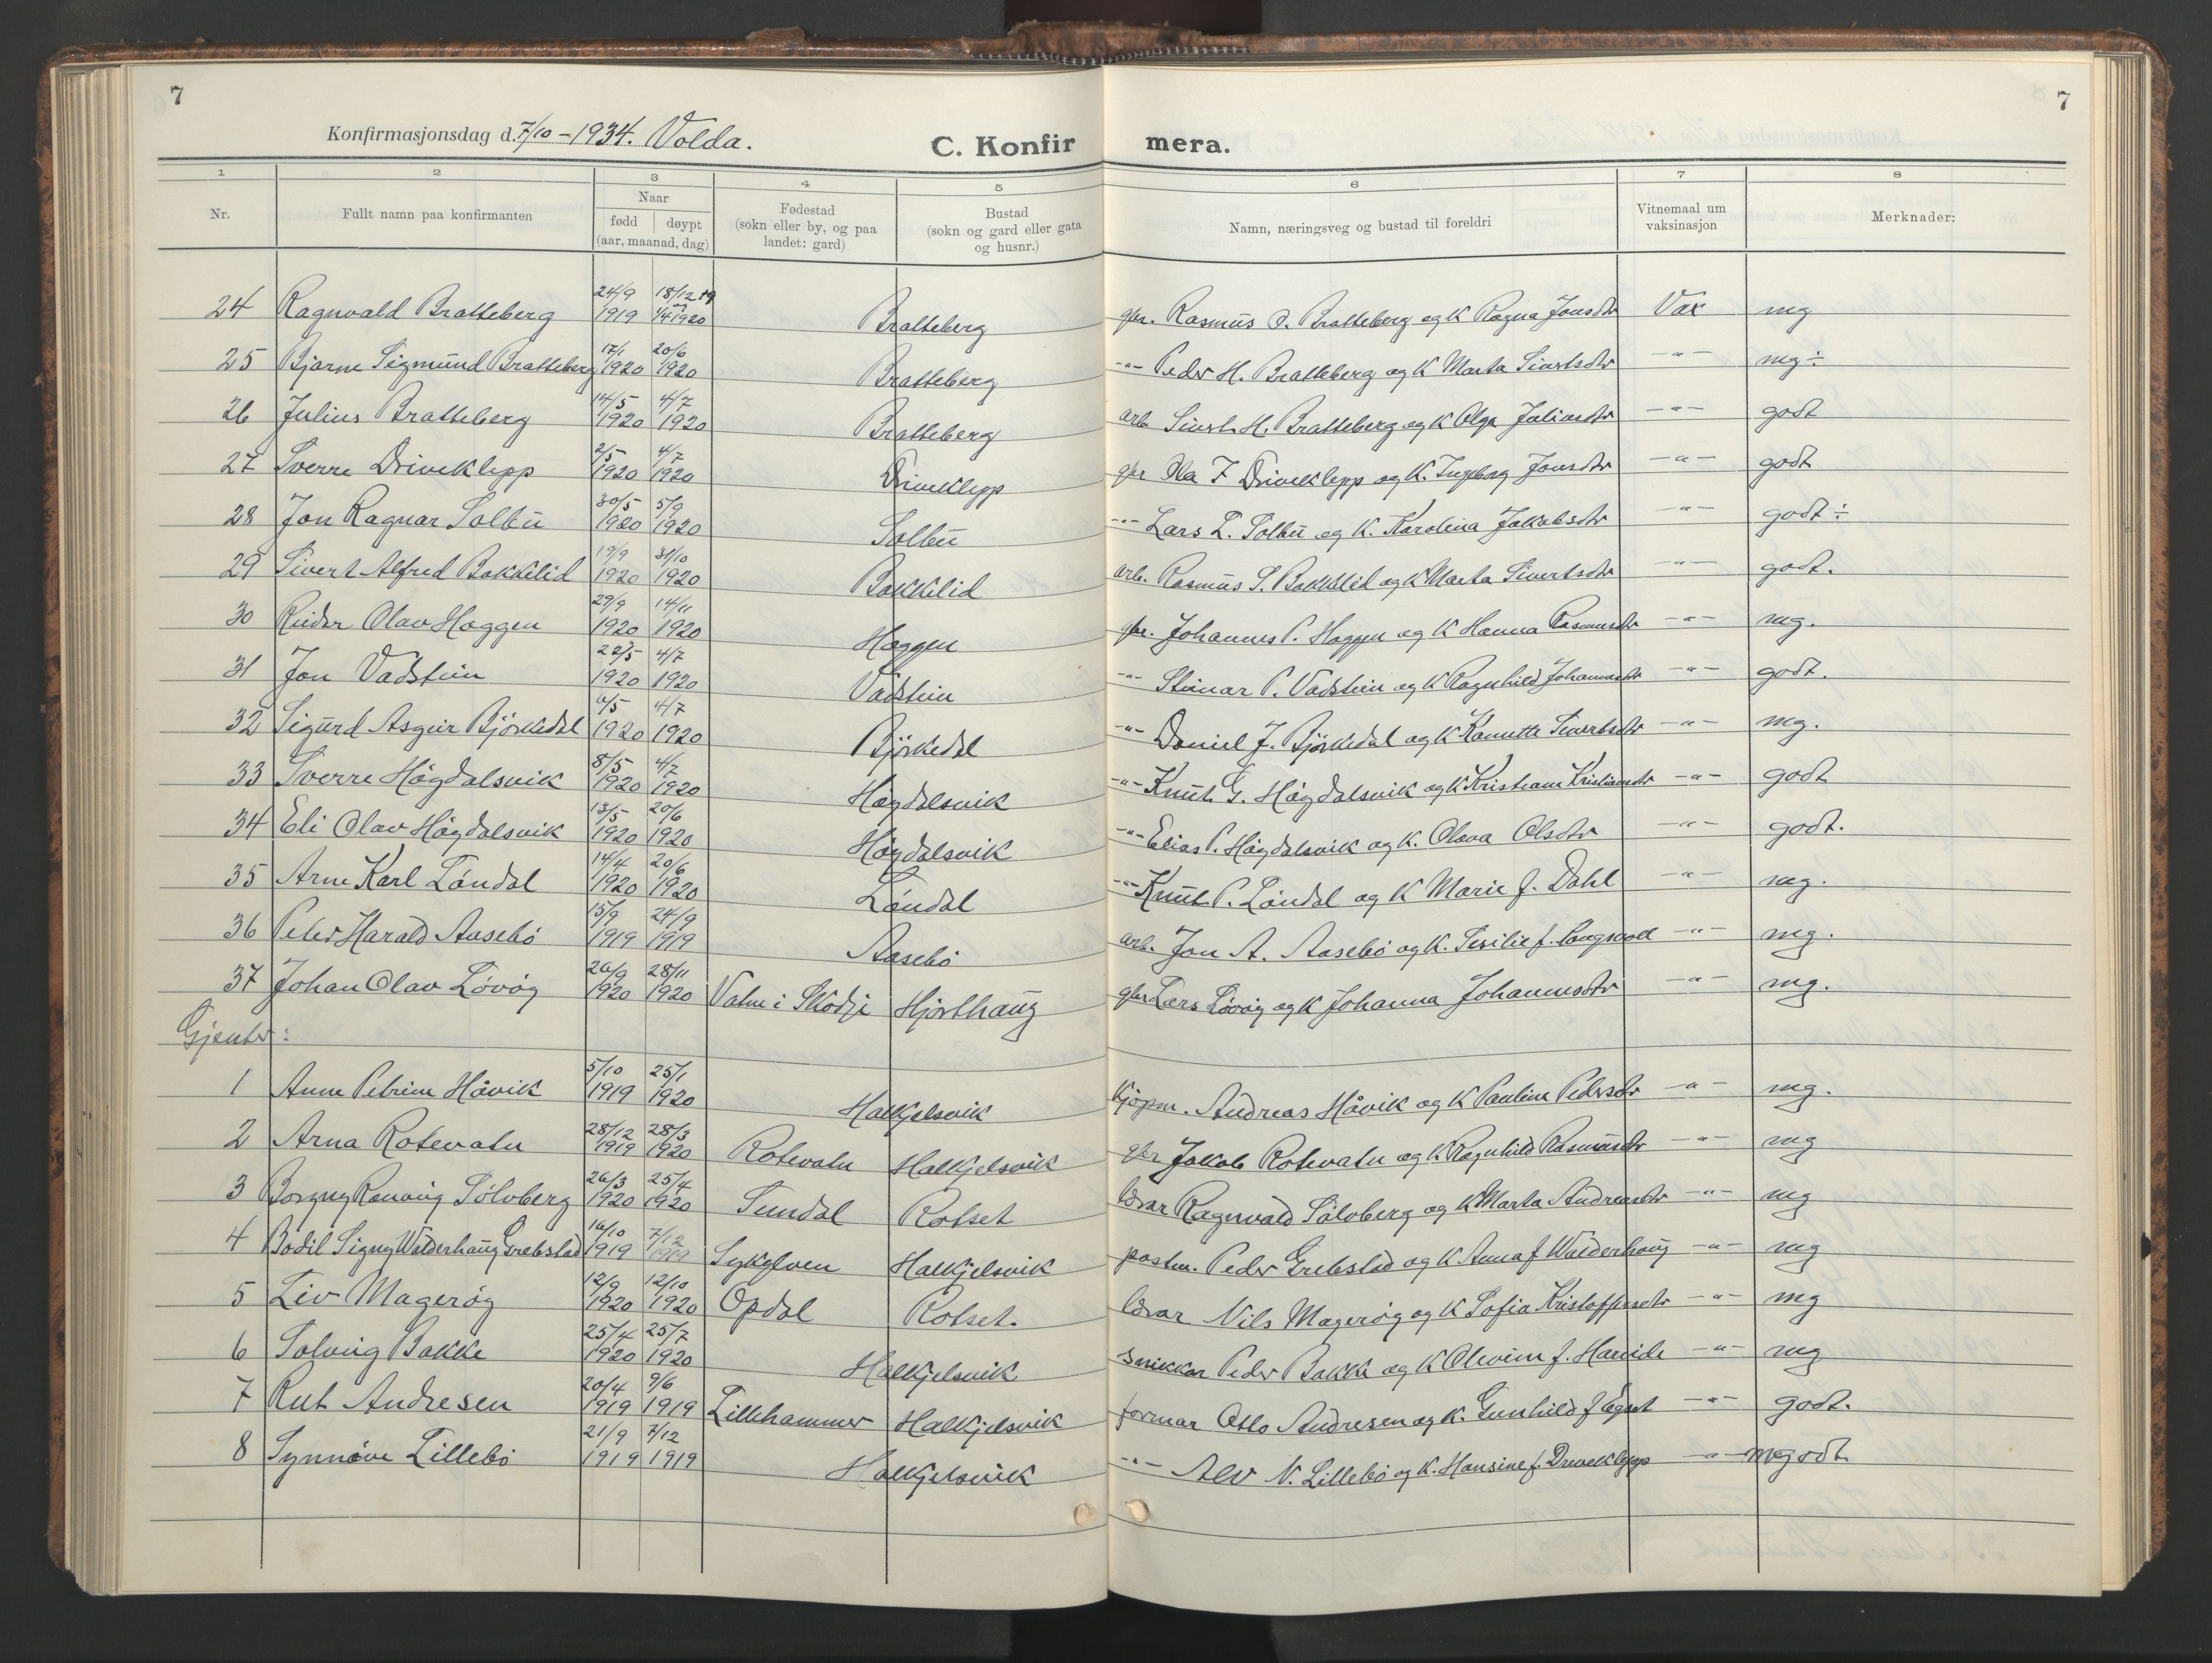 7
7
Konfirmasjonsdag d. 7/10 - 1934. Volda.
C. Konfir mera.
1 2 3 4 5 6 7 8
Nr. Fullt namn paa konfirmanten Naar fødd døypt (aar, maanad, dag) Fødestad (sokn eller by, og paa landet: gard) Bustad (sokn og gard eller gata og husnr.) Namn, næringsveg og bustad til foreldri Vitnemaal um vaksinasjon Merknader:
24 Ragnvald Bratteberg 24/9 1919 18/12 19 1/4 1920 Bratteberg gbr. Rasmus O. Bratteberg og K Ragna Jonsdtr Vax mg
25 Bjarne Sigmund Bratteberg 17/1 1920 20/6 1920 Bratteberg -"- Peder H. Bratteberg og K Marta Sivertsdtr -"- mg÷
26 Julius Bratteberg 14/5 1920 4/7 1920 Bratteberg arb. Sivert H. Bratteberg og K Olga Juliusdtr -"- godt
27 Sverre Driveklepp 2/5 1920 4/7 1920 Driveklepp gbr Ola J Driveklepp og K. Ingeborg Jonsdtr -"- godt
28 Jon Ragnar Solbu 30/5 1920 5/9 1920 Solbu -"- Lars L. Solbu og K. Karolina Jakobsdtr -"- godt ÷
29 Sivert Alfred Bakkelid 19/9 1920 31/10 1920 Bakkelid arb. Rasmus S. Bakkelid og K Marta Sivertsdtr -"- godt.
30 Reidar Olav Haggen 29/9 1920 14/11 1920 Haggen gbr. Johannes P. Haggen og K Hanna Rasmusdtr -"- mg.
31 Jon Vadstein 22/5 1920 4/7 1920 Vadstein -"- Steinar P. Vadstein og K Ragnhild Johannesdtr -"- godt.
32 Sigurd Asgeir Björkedal 6/5 1920 4/7 1920 Björkedal -"- Daniel J. Björkedal og K Hanette Sivertsdtr -"- mg.
33 Sverre Högdalsvik 8/5 1920 4/7 1920 Högdalsvik -"- Knut G. Högdalsvik og K Kristiane Kristiansdtr -"- godt
34 Eli Olav Högdalsvik 13/5 1920 20/6 1920 Högdalsvik -"- Elias P. Högdalsvik og K. Olava Olsdtr -"- godt.
35 Arne Karl Löndal 14/4 1920 20/6 1920 Löndal -"- Knut P. Löndal og K Marie f. Dahl -"- mg.
36 Peter Harald Aasebö 15/9 1919 24/9 1919 Aasebö arb. Jon A. Aasebö og K. Sesilie f. -"- mg.
37 Johan Olav Lövög 26/9 1920 28/11 1920 Vatne i Skodje Hjorthaug gbr Lars Lövög og K Johanna Johannesdtr -"- mg.
Gjenter:
1 Anne Petrine Håvik 5/10 1919 25/1 1920 Halkjelsvik Kjöpm. Andreas Håvik og K Pauline Pedersdtr -"- mg.
2 Arna Rotevatn 28/12 1919 28/3 1920 Rotevatn Halkjelsvik gbr Jakob Rotevatn og K Ragnhild Rasmusdtr -"- mg
3 Borgny Ranveig Sölvberg 26/3 1920 25/4 1920 Sundal Rotset lærar Ragnvald Sölvberg og K Marta Andreasdtr -"- mg
4 Bodil Signy Walderhaug Grebstad 16/10 1919 7/12 1919 Sykylven Halkjelsvik postm. Peder Grebstad og K. Anna f Walderhaug -"- mg
5 Liv Mageröy 12/9 1920 12/10 1920 Opdal Rotset. lærar Nils Mageröy og K Sofia Kristoffersdtr -"- mg
6 Solveig Bakke 25/4 1920 25/7 1920 Halkjelsvik snikkar Peder Bakke og K Olevine f. Hareide -"- mg
7 Rut Andresen 20/4 1919 9/6 1919 Lillehammer Halkjelsvik formar Otto Andresen og K. Gunhild f -"- godt.
8 Synnöve Lillebö 21/9 1919 7/12 1919 Halkjelsvik -"- Alv N. Lillebö og K. Hansine f. Driveklepp -"- mgodt.